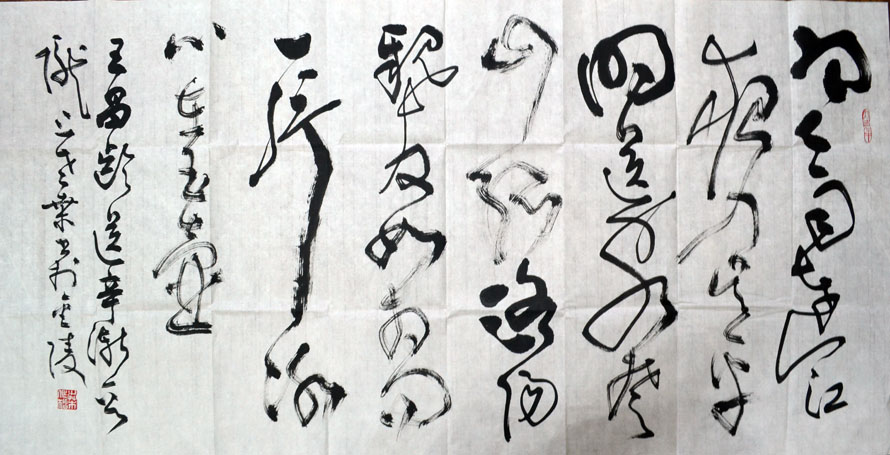 寒雨連江
夜入吴平
明送客楚
山孤洛陽
親友如相問
一片冰
心在玉壺
王昌齡送辛漸
隴上老葉書於金陵